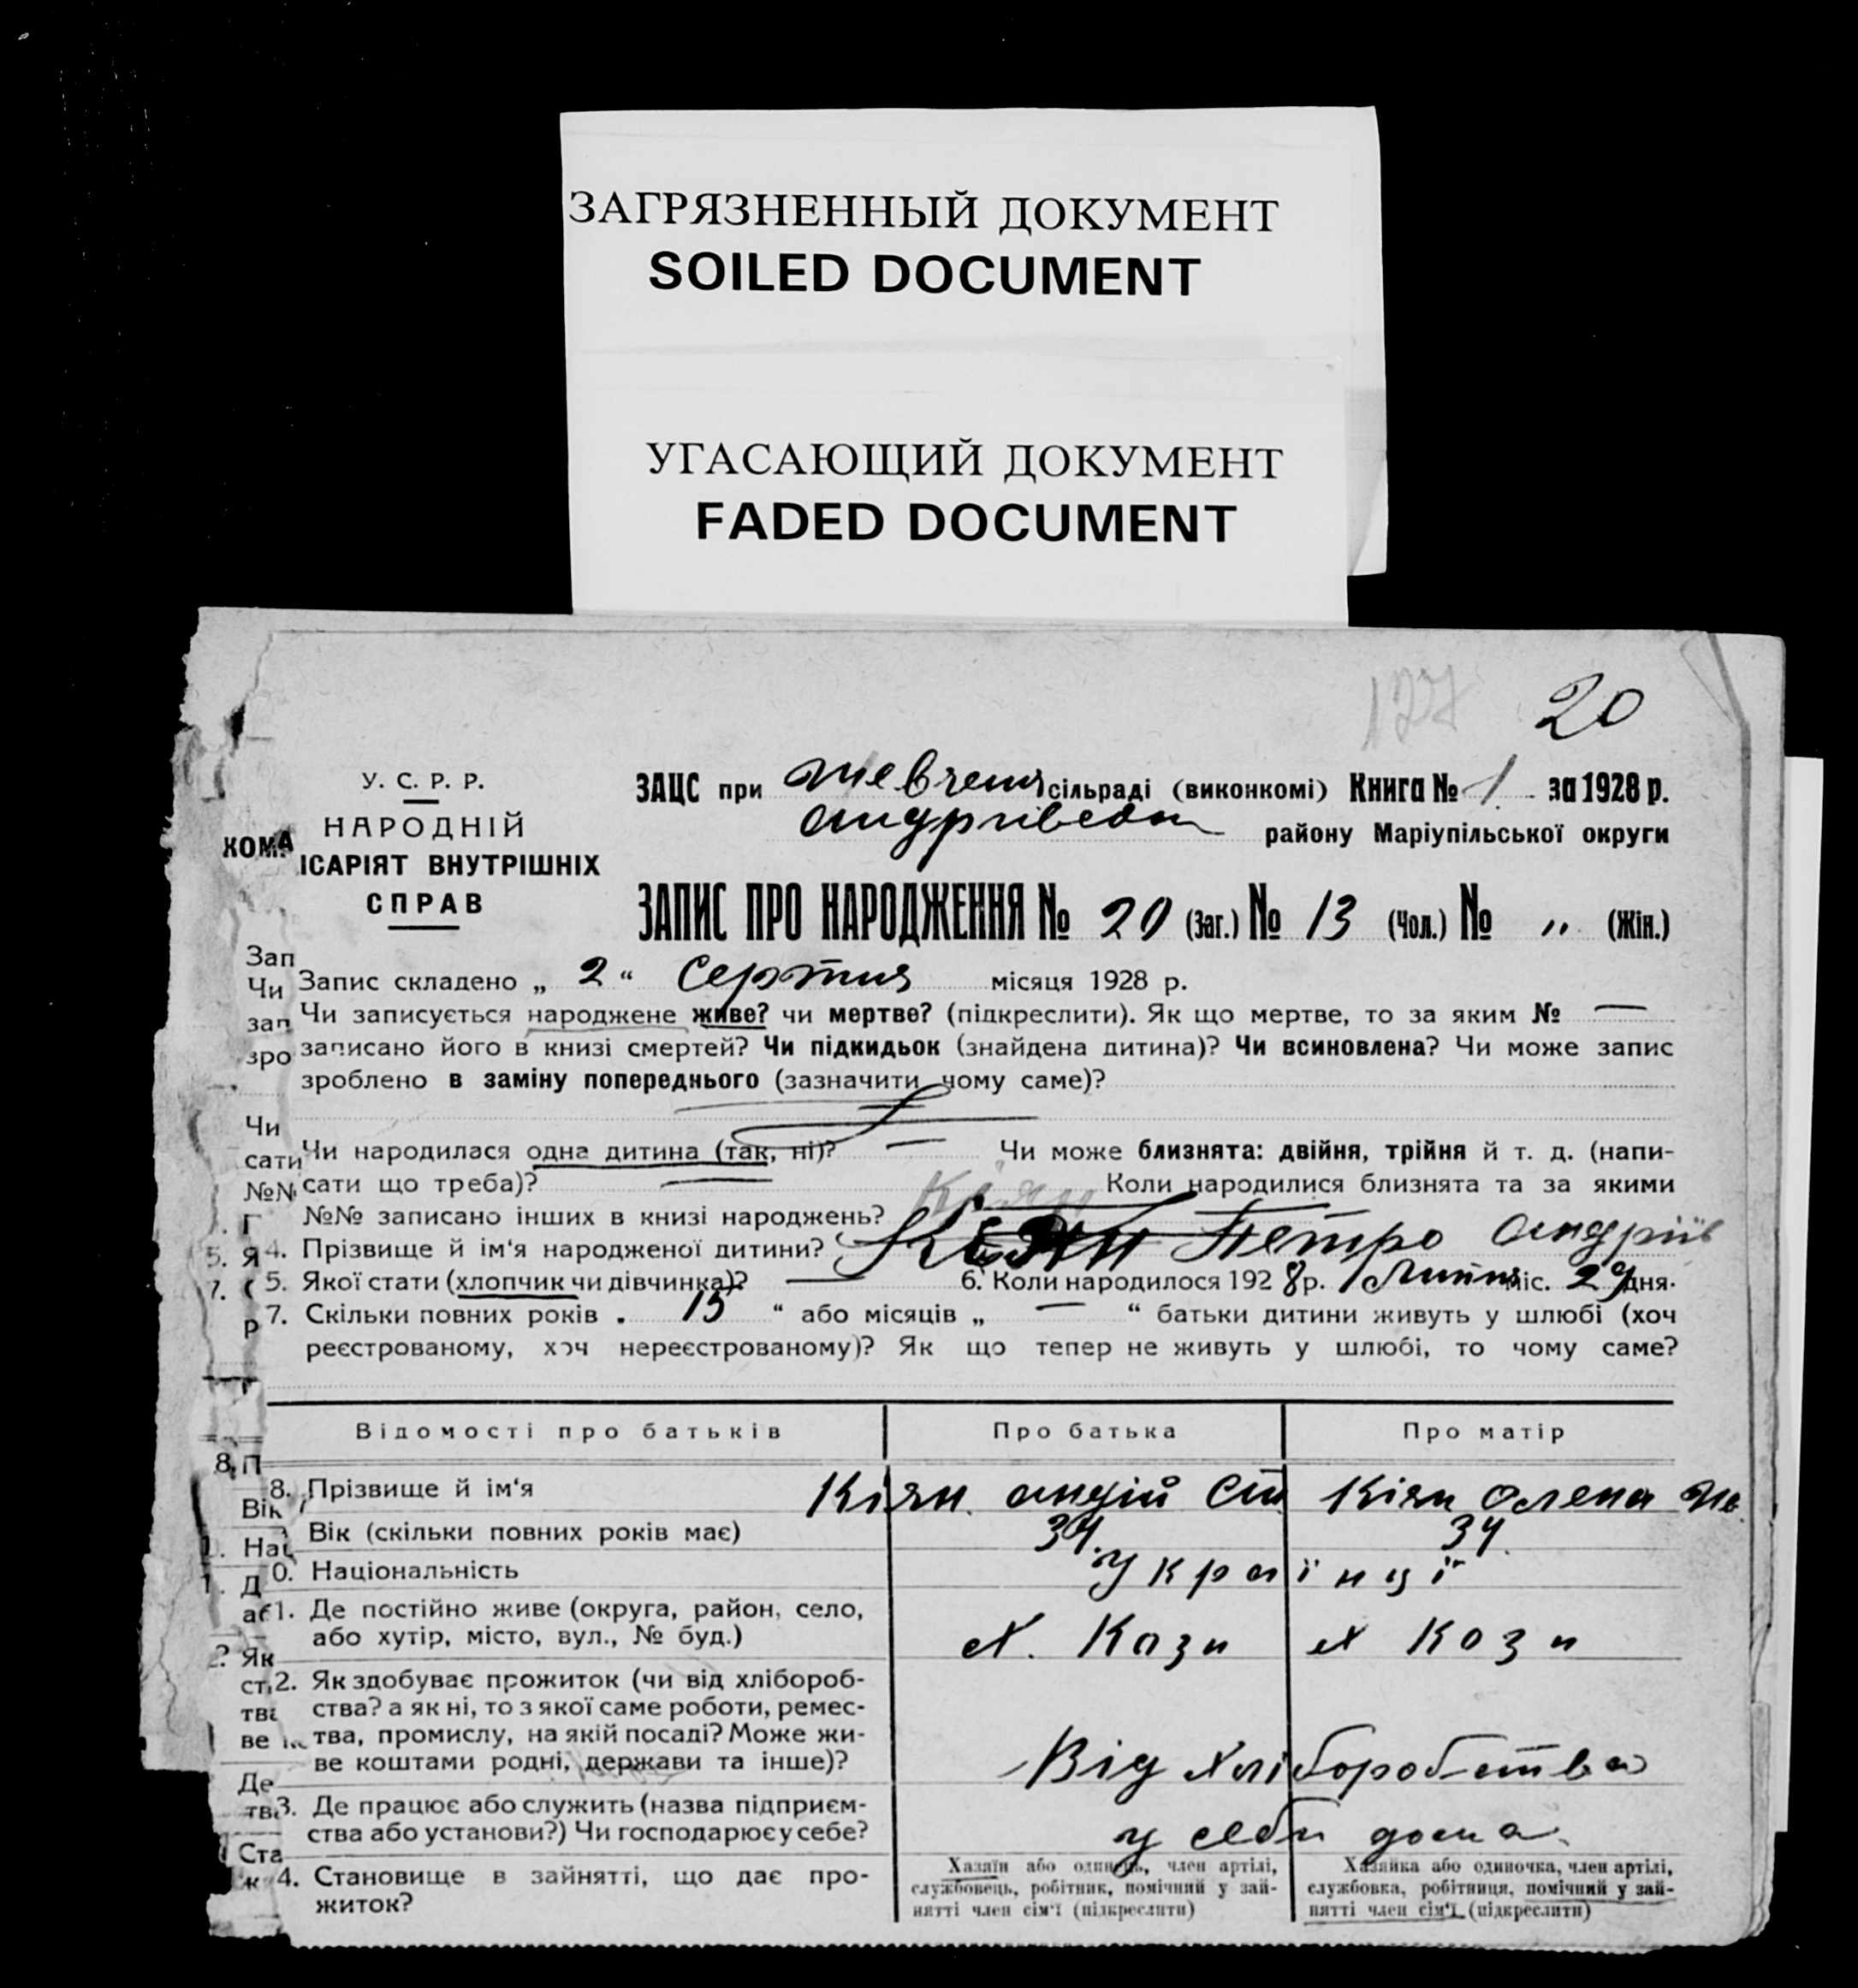 ЗАГРЯЗНЕННЫЙ ДОКУМЕНТ
SOILED DOCUMENT
УГАСАЮЩИЙ ДОКУМЕНТ
FADED DOCUMENT
127 20
У. С. Р. Р.
НАРОДНІЙ
КОМА
ІСАРІЯТ ВНУТРІШНІХ
СПРАВ
ЗАЦС при сільраді (виконкомі) Книга № 1 за 1928 р.
району Маріупільської округи
ЗАПИС ПРО НАРОДЖЕННЯ № 20 (Заг.) № 13 (Чол.) № „ (Жін.)
Зап
Чи Запис складено „ 2 “ Серпня місяця 1928 р.
зап Чи записується народжене живе? чи мертве? (підкреслити). Як що мертве, то за яким № —
зро записано його в книзі смертей? Чи підкидьок (знайдена дитина)? Чи всиновлена? Чи може запис
зроблено в заміну попереднього (зазначити чому саме)?
Чи
сати Чи народилася одна дитина (так, ні)? — Чи може близнята: двійня, трійня й т. д. (напи-
№№ сати що треба)? — Коли народилися близнята та за якими
Г №№ записано інших в книзі народжень? Кіян
5. Я 4. Прізвище й ім‘я народженої дитини? Петро Андріїв
7. ( 5. Якої стати (хлопчик чи дівчинка)? — 6. Коли народилося 1928 р. Липня міс. 29 дня.
р 7. Скільки повних років „ 15 “ або місяців „ — “ батьки дитини живуть у шлюбі (хоч
реєстрованому, хоч нереєстрованому)? Як що тепер не живуть у шлюбі, то чому саме?
Відомості про батьків Про батька Про матір
8. П
8. Прізвище й ім‘я Кіян Андрій Ст Кіян Олена
Вік
Вік (скільки повних років має) 34. 34.
Нац
0. Національність Українці
Д
аб 1. Де постійно живе (округа, район, село,
або хутір, місто, вул., № буд.) х. Кози х Кози
Як
ст 2. Як здобуває прожиток (чи від хлібороб-
тва ства? а як ні, то з якої саме роботи, ремес-
ве тва, промислу, на якій посаді? Може жи-
ве коштами родні, держави та інше)? Від хліборобства
Де
тва 3. Де працює або служить (назва підприєм-
ства або установи?) Чи господарює у себе? у себе дома.
Ста
к 4. Становище в зайнятті, що дає про-
житок?
Хазяїн або одинець, член артілі,
службовець, робітник, помічний у зай-
нятті член сім‘ї (підкреслити)
Хазяйка або одиночка, член артілі,
службовка, робітниця, помічний у зай-
нятті член сім‘ї (підкреслити)